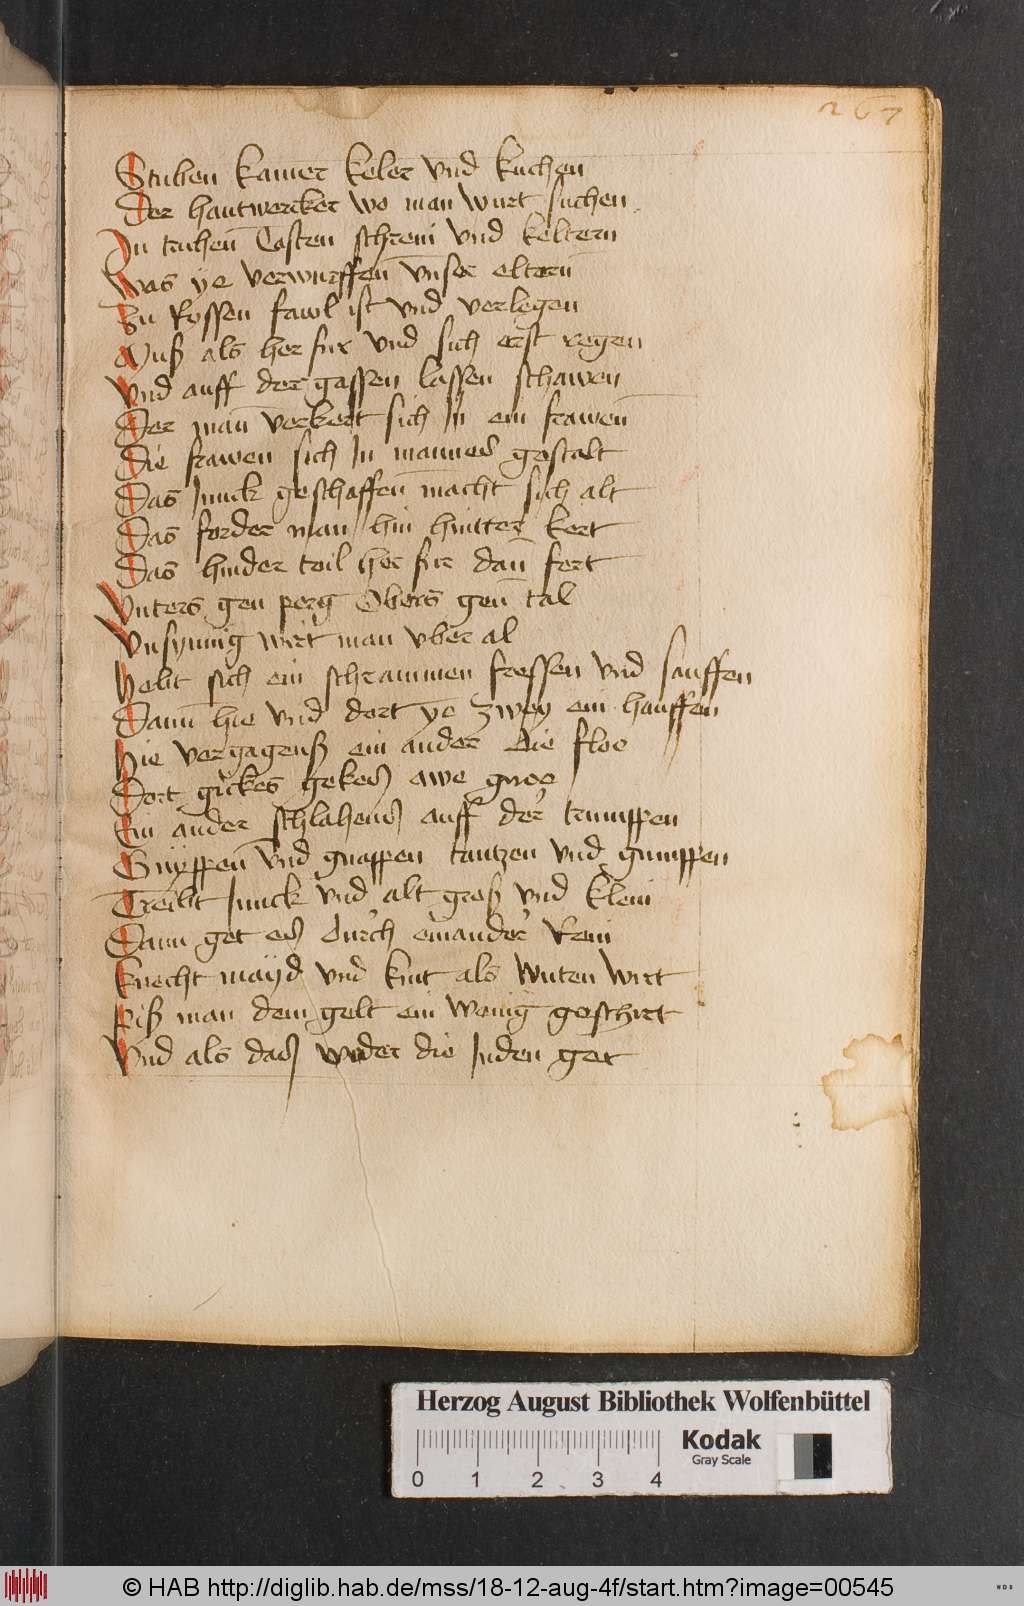 267
Stuben kamer keler vnd kuchen
Der hantwercker wo man wurt suchen
In truhen Casten schrein vnd keltern
Was ye verwurffen vnser eltern
Zu Rossen fawl ist vnd verlegen
Muß als her fur vnd sich erst regen
Vnd auff der gassen lassen schawen
Der man verkert sich In ein frawen
Die frawen sich In mannes gestalt
Das Junck geschaffen macht sich alt
Das forder man hin hintter kert
Das hinder teil her fur dan fert
Vnters gen perg Obers gen tal
Vnsynnig wirt man vber al
Hebt sich ein schrammen fressen vnd sauffen
Dann hie vnd dort ye zwey ein hauffen
Hie vergagenß ein ander die floe
Dort gickes gekes awe gnoe
Ein ander schlahens auff der trumppen
Gnyppen vnd gnappen tantzen vnd gumppen
Treibt Junck vnd alt groß vnd klein
Dann get es durch einander Rein
Knecht mayd vnd kint als wuten wirt
piß man dem gelt ein wenig geschirt
Vnd als das vnder die Juden get
Herzog August Bibliothek Wolfenbüttel
Kodak
Gray Scale
0 1 2 3 4
© HAB http://diglib.hab.de/mss/18-12-aug-4f/start.htm?image=00545